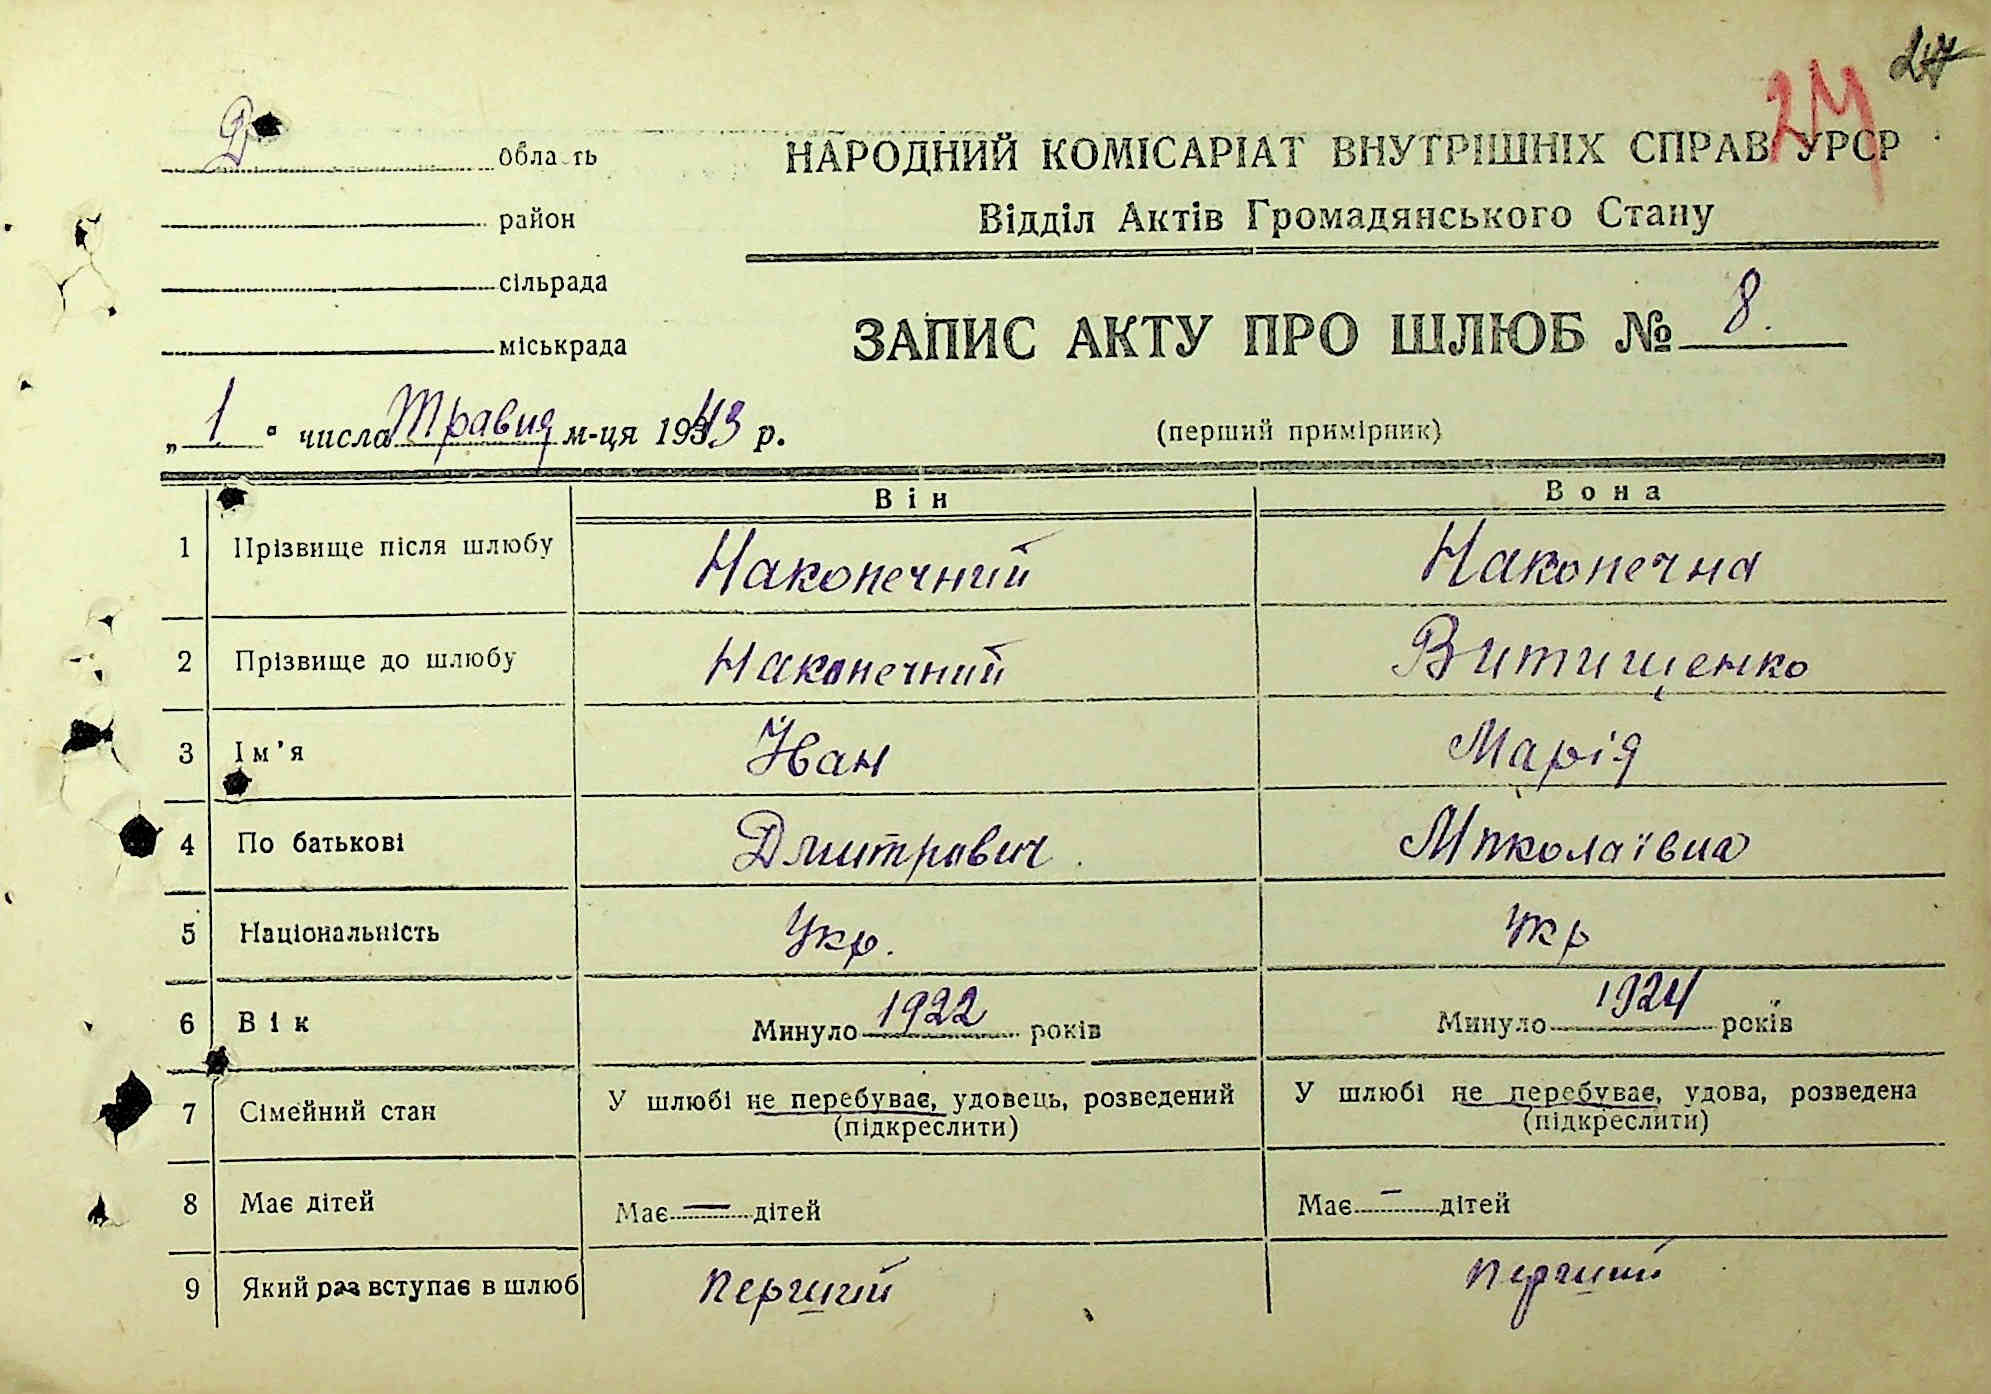 24
Д
область
НАРОДНИЙ КОМІСАРІАТ ВНУТРІШНІХ СПРАВ УРСР
район
Відділ Актів Громадянського Стану
сільрада
міськрада
ЗАПИС АКТУ ПРО ШЛЮБ № 8.
„1" числа Травня м-ця 1943 р.
(перший примірник)
Він Вона
1 Прізвище після шлюбу Наконечний Наконечна
2 Прізвище до шлюбу Наконечний Витищенко
3 Ім'я Йван Марія
4 По батькові Дмитрович Миколаївна
5 Національність Укр. Укр
6 Вік Минуло 1922 років Минуло 1924 років
7 Сімейний стан У шлюбі не перебуває, удовець, розведений У шлюбі не перебуває, удова, розведена
(підкреслити) (підкреслити)
8 Має дітей Має — дітей Має — дітей
9 Який раз вступає в шлюб перший перший